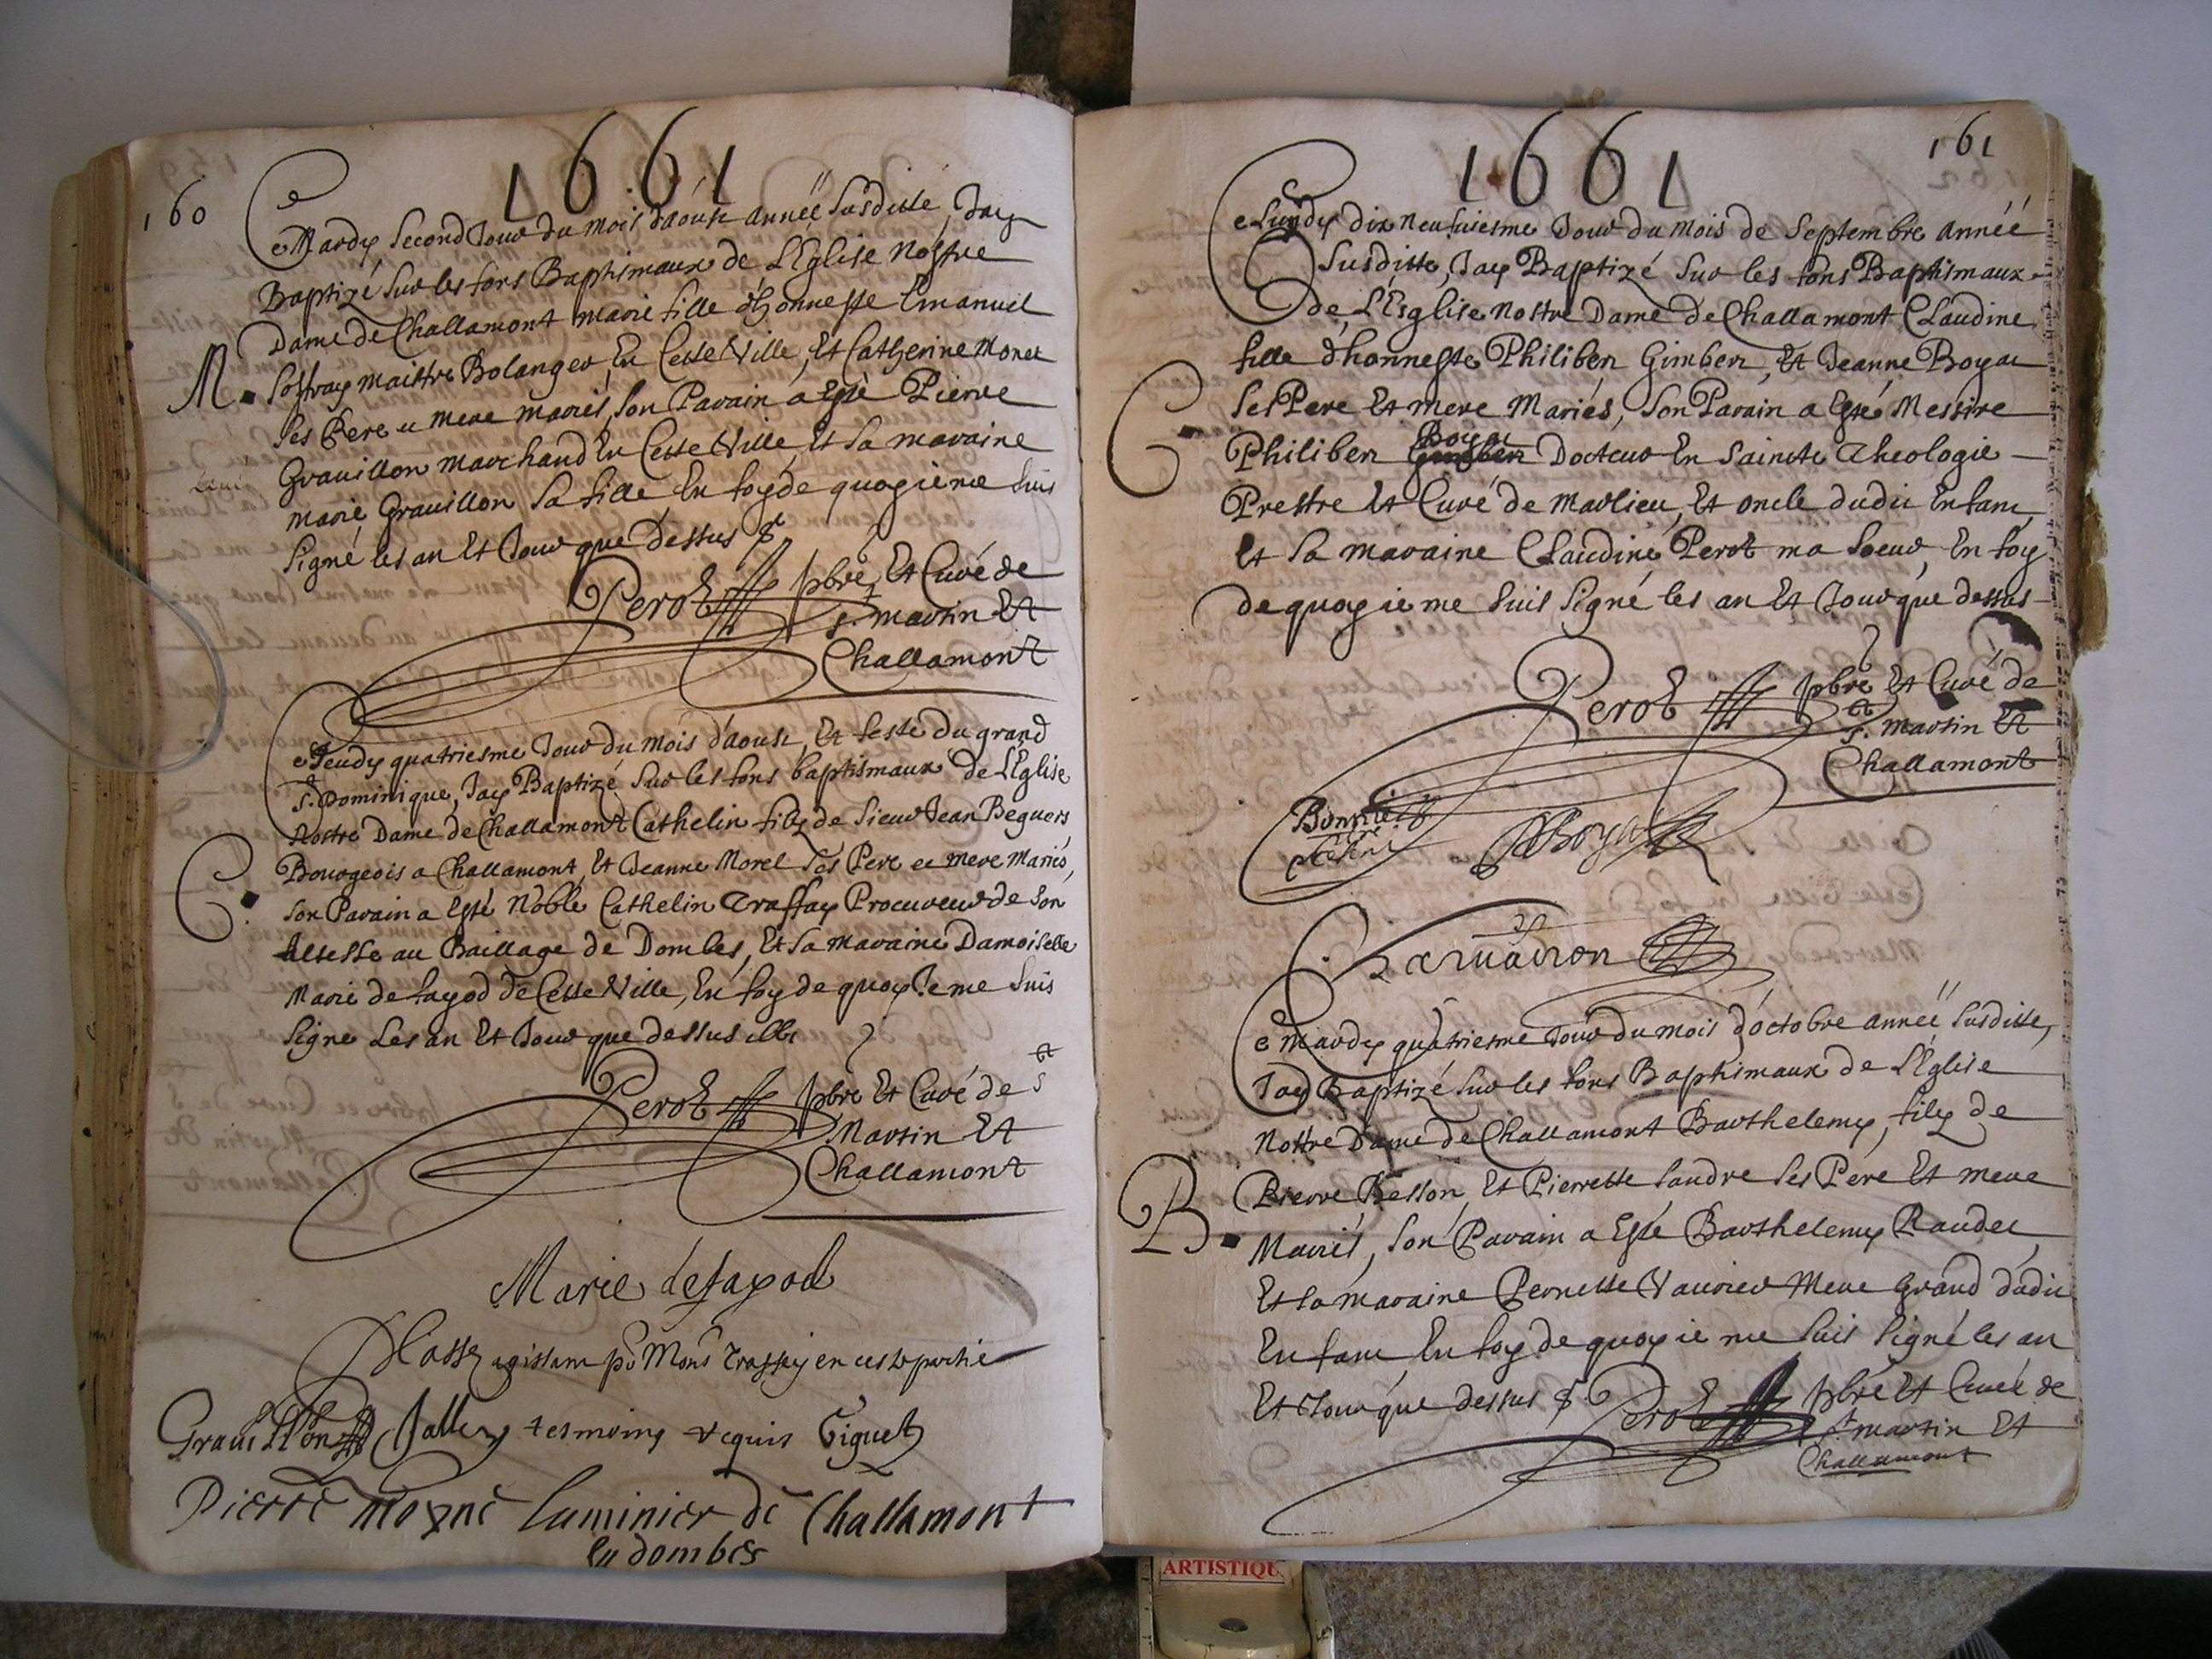 1661
160
Ce Mardy second Jour du mois d'aoust année susditte, J'ay
Baptizé sur les fons Baptismaux de L'Eglise Nostre
Dame de Challamont marie fille d'honneste Emanuel
M. Soffray maistre Bolanger En Cette Ville, Et Catherine Monet
ses Pere et mere mariés, son Parain a Esté Pierre
Grauillon marchand En Cette Ville, Et sa maraine
marie Grauillon sa fille En foy de quoy ie me suis
signé les an Et Jour que Dessus
Perot pbre Et Curé de
S. martin Et
Challamont
Ce Jeudy quatriesme Jour du mois d'aoust, Et feste du grand
St. Dominique, J'ay Baptizé sur les fons baptismaux de L'Eglise
Nostre Dame de Challamont Cathelin filz de sieur Jean Beguers
Bourgeois a Challamont, Et Jeanne Morel ses Pere et mere Mariés,
C. son Parain a Esté Noble Cathelin Traffay Procureur de son
Altesse au Baillage de Dombes, Et sa maraine Damoiselle
Marie de fayod de Cette Ville, En foy de quoy Je me suis
signe Les an Et Jour que dessus
Perot pbre Et Curé de St
Martin Et
Challamont
Marie defayod
agissant po Mons Traffey en ceste partie
Grauillon tesmoing requis
Pierre moyne luminier de Challamont
en dombes
1661
161
Ce Lundy dix neufuiesme Jour du mois de Septembre année
susditte, J'ay Baptizé sur les fons Baptismaux
de L'Esglise Nostre Dame de Challamont Claudine
fille d'honneste Philibert Gimbert, Et Jeanne Boyat
ses Pere Et mere Mariés, son Parain a Esté Messire
C.
Boyat
Philibert Gimbert Docteur En Saincte Theologie
Prestre Et Curé de Marlieu, Et oncle dudit Enfant
Et sa maraine Claudine Perot ma soeur, En foy
de quoy ie me suis signé les an Et Jour que dessus
Perot pbre Et Curé de
St. Martin Et
Challamont
Boyat
Ce Mardy quatriesme Jour du mois d'octobre année susditte,
J'ay Baptizé sur les fons Baptismaux de L'Eglise
Nostre Dame de Challamont Barthelemy, filz de
Pierre Besson, Et Pierrette Landre ses Pere Et mere
B. Mariés, son Parain a Esté Barthelemy Raudet,
Et sa maraine Pernette Vaurier Mere Grand dudit
Enfant En foy de quoy ie me suis signé les an
Et Jour que dessus
Perot pbre Et Curé de
St martin Et
Challamont
ARTISTIQU